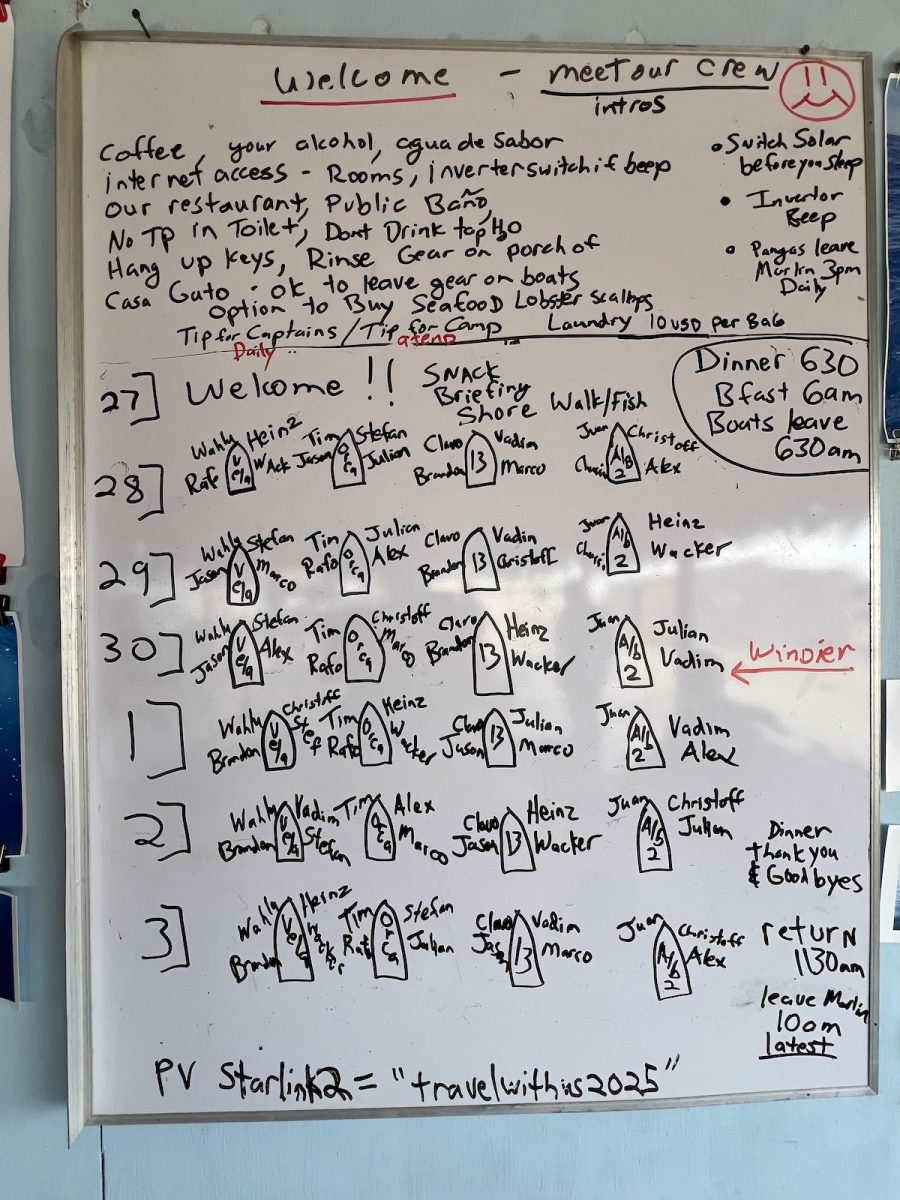 Welcome - meet our crew
intros
Coffee, your alcohol, agua de sabor
internet access - Rooms, inverter switch if beep
our restaurant, Public Baño,
No TP in Toilet, Dont Drink tap H2O
Hang up keys, Rinse Gear on porch of
Casa Gato - ok to leave gear on boats
Option to Buy Seafood Lobster Scallops
Tip for Captains / Tip for Camp Laundry 10 USD per BaG
Daily at end
• Switch Solar
before you sleep
• Invertor
Beep
• Pangas leave
Marlin 3pm
Daily
27] Welcome !! SNACK
Briefing
Shore Walk/Fish
Dinner 630
Bfast 6am
Boats leave
630am
28]
Wahly Heinz
Rafe Wack
Tim Stefan
Jason Orca Julian
Clavo Vadim
Brandon 13 Marco
Juan Christoff
A/B 2 Alex
29]
Wahly Stefan
Jason Marco
Tim Julian
Rafo Orca Alex
Clavo Vadin
Brandon 13 Cristoff
Juan Heinz
A/b 2 Wacker
30]
Wahly Stefan
Jason Alex
Tim Christoff
Rafo Orca Marco
Clavo Heinz
Brandon 13 Wacker
Juan Julian
A/b 2 Vadim
Windier
1]
Wahly Christoff
Brandon Stef
Tim Heinz
Rafo Orca Wacker
Clavo Julian
Jason 13 Marco
Juan Vadim
A/b 2 Alex
2]
Wahly Vadim
Brandon Stefan
Tim Alex
Orca Marco
Clavo Heinz
Jason 13 Wacker
Juan Christoff
A/b 2 Julian
Dinner
thank you
& Goodbyes
3]
Wahly Heinz
Brandon Wacker
Tim Stefan
Rafo Orca Julian
Clavo Vadim
Jason 13 Marco
Juan Christoff
A/b 2 Alex
return
1130am
leave Marlin
10am
latest
PV Starlink2 = "travelwithus2025"